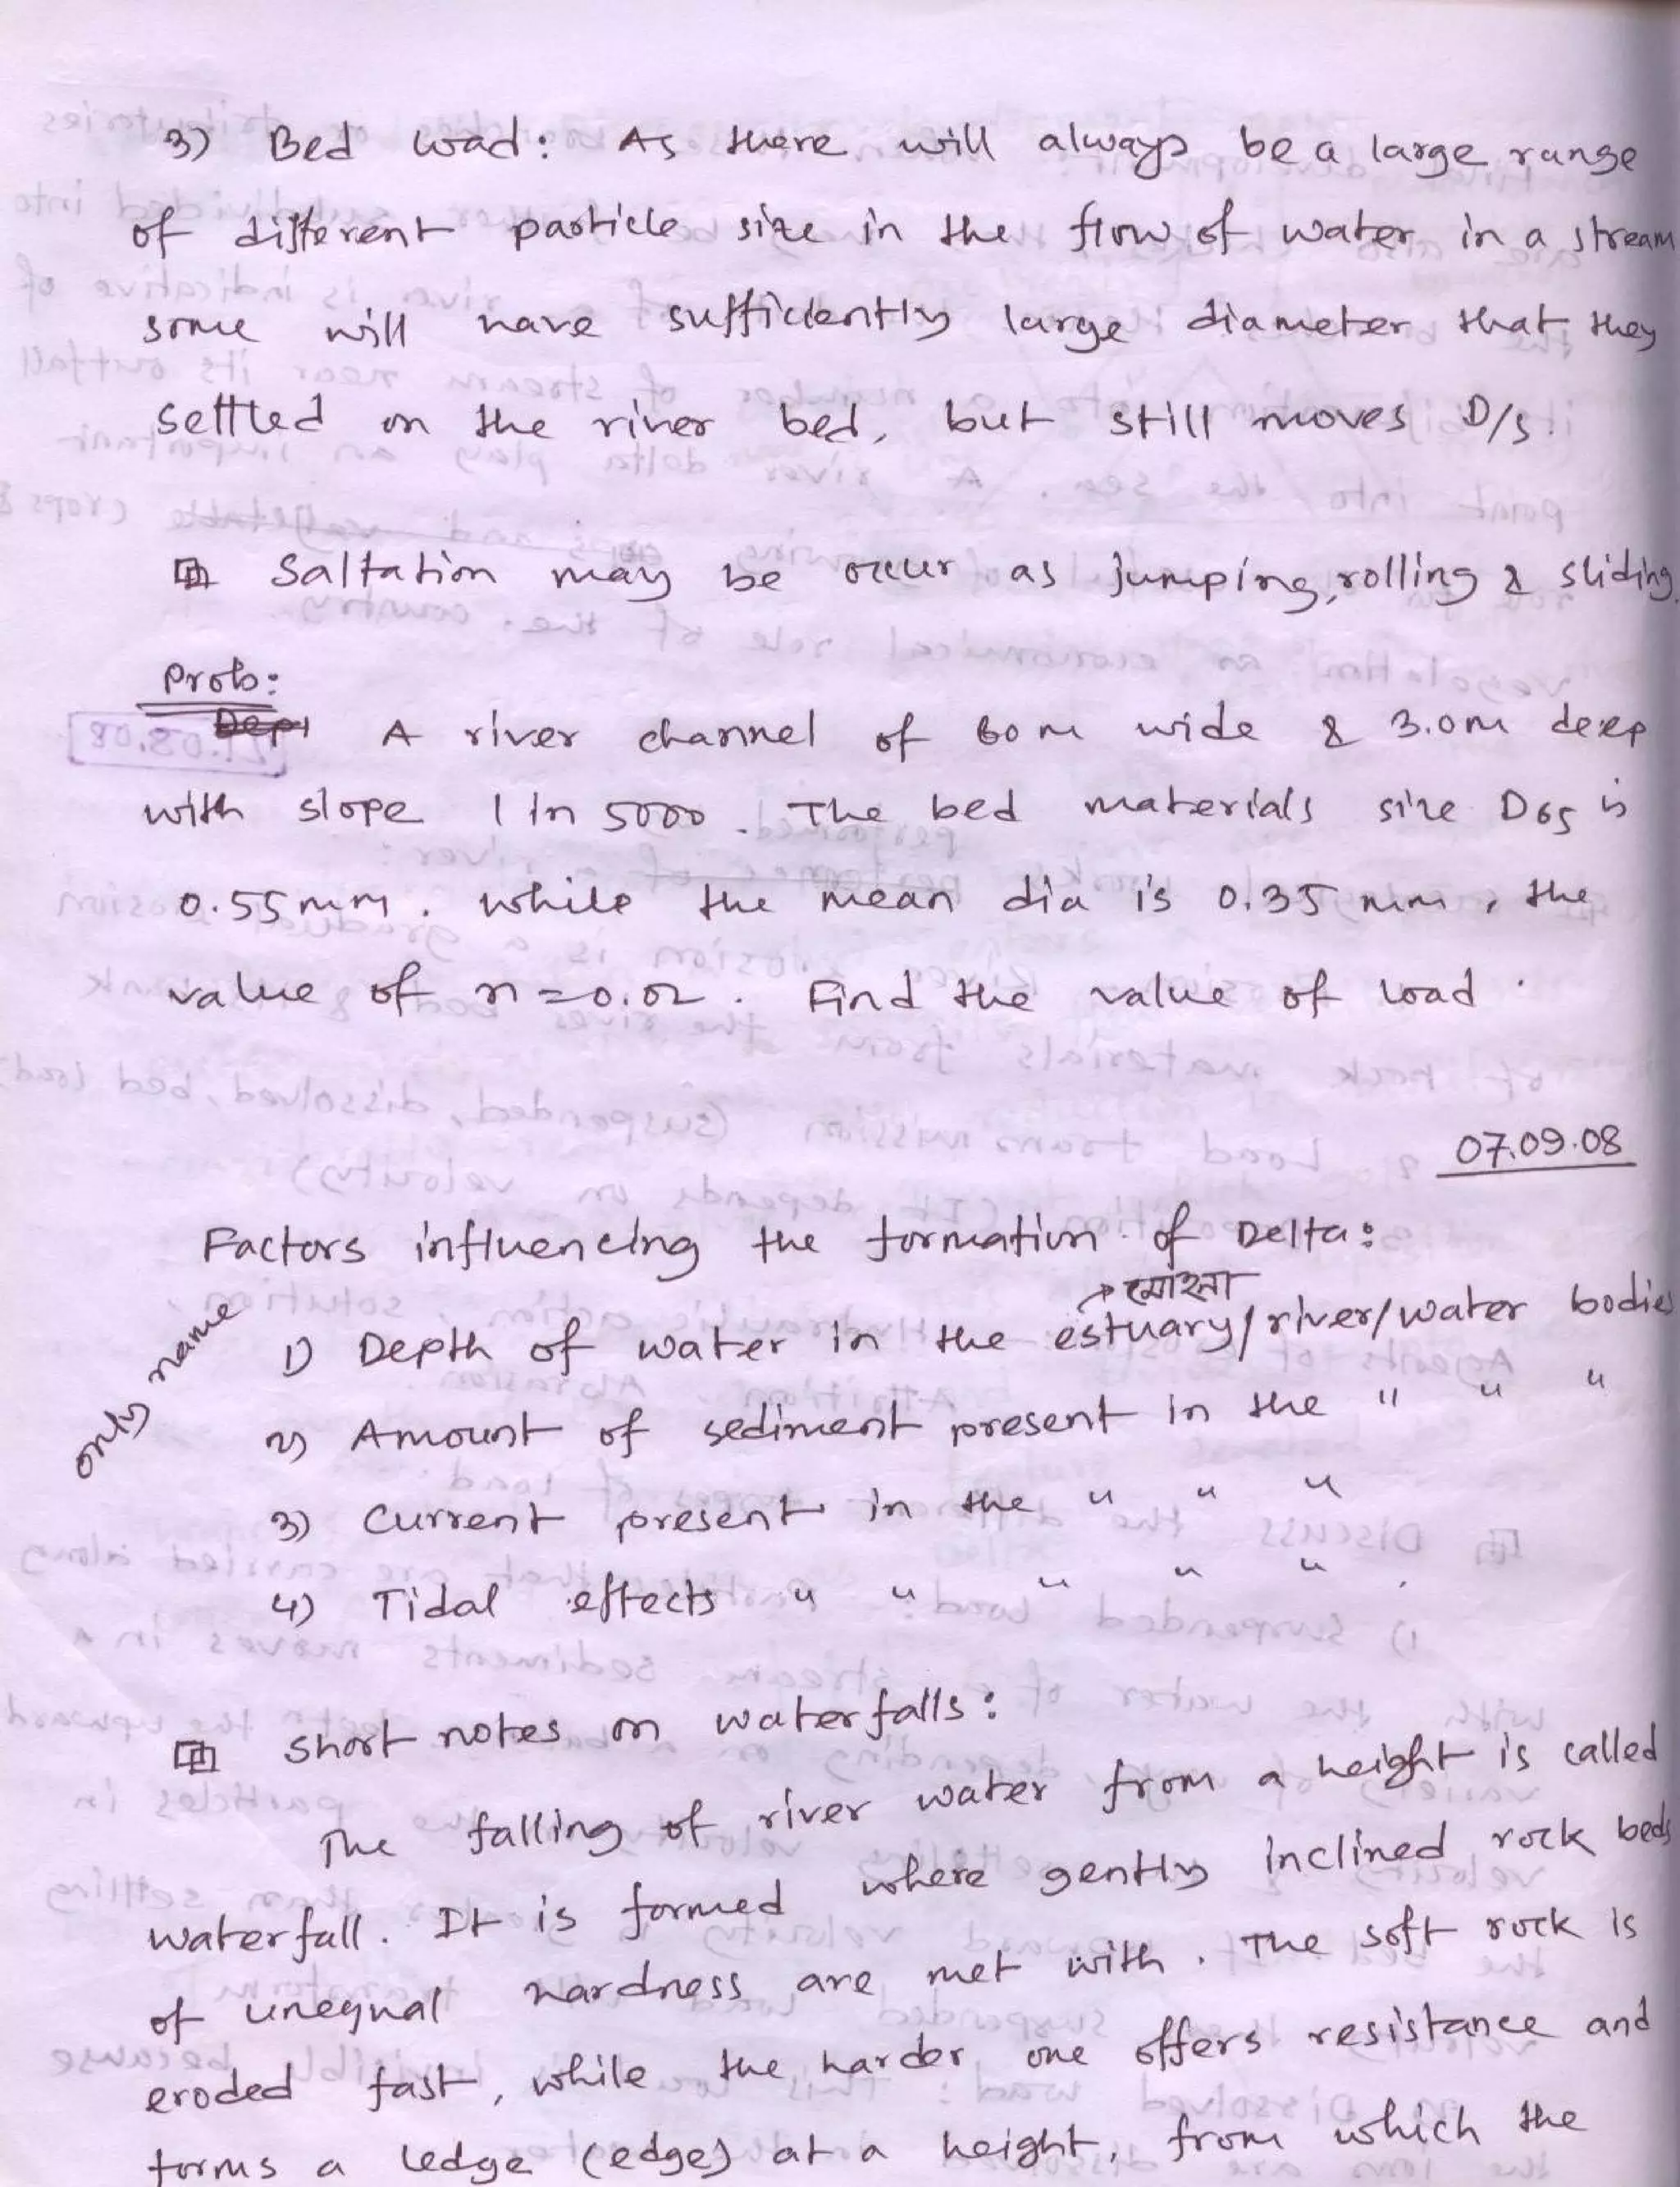 3) Bed load: As there will always be a large range
of different particle size in the flow of water in a stream
some will have sufficiently large diameter that they
settled on the river bed, but still moves D/S.
Saltation may be occur as jumping, rolling & sliding.
Prob:
A river channel of 60 m wide & 3.0m deep
with slope 1 in 5000. The bed materials size D65 is
0.55 mm. while the mean dia is 0.35 mm, the
value of n = 0.02. Find the value of load.
07.09.08
Factors influencing the formation of Delta:
→ মোহনা
only name
1) Depth of water in the estuary/river/water bodies
2) Amount of sediment present in the " " "
3) Current present in the " " "
4) Tidal effects " " " " "
Short notes on waterfalls:
The falling of river water from a height is called
waterfall. It is formed where gently inclined rock beds
of unequal hardness are met with. The soft rock is
eroded fast, while the harder one offers resistance and
forms a ledge (edge) at a height, from which the